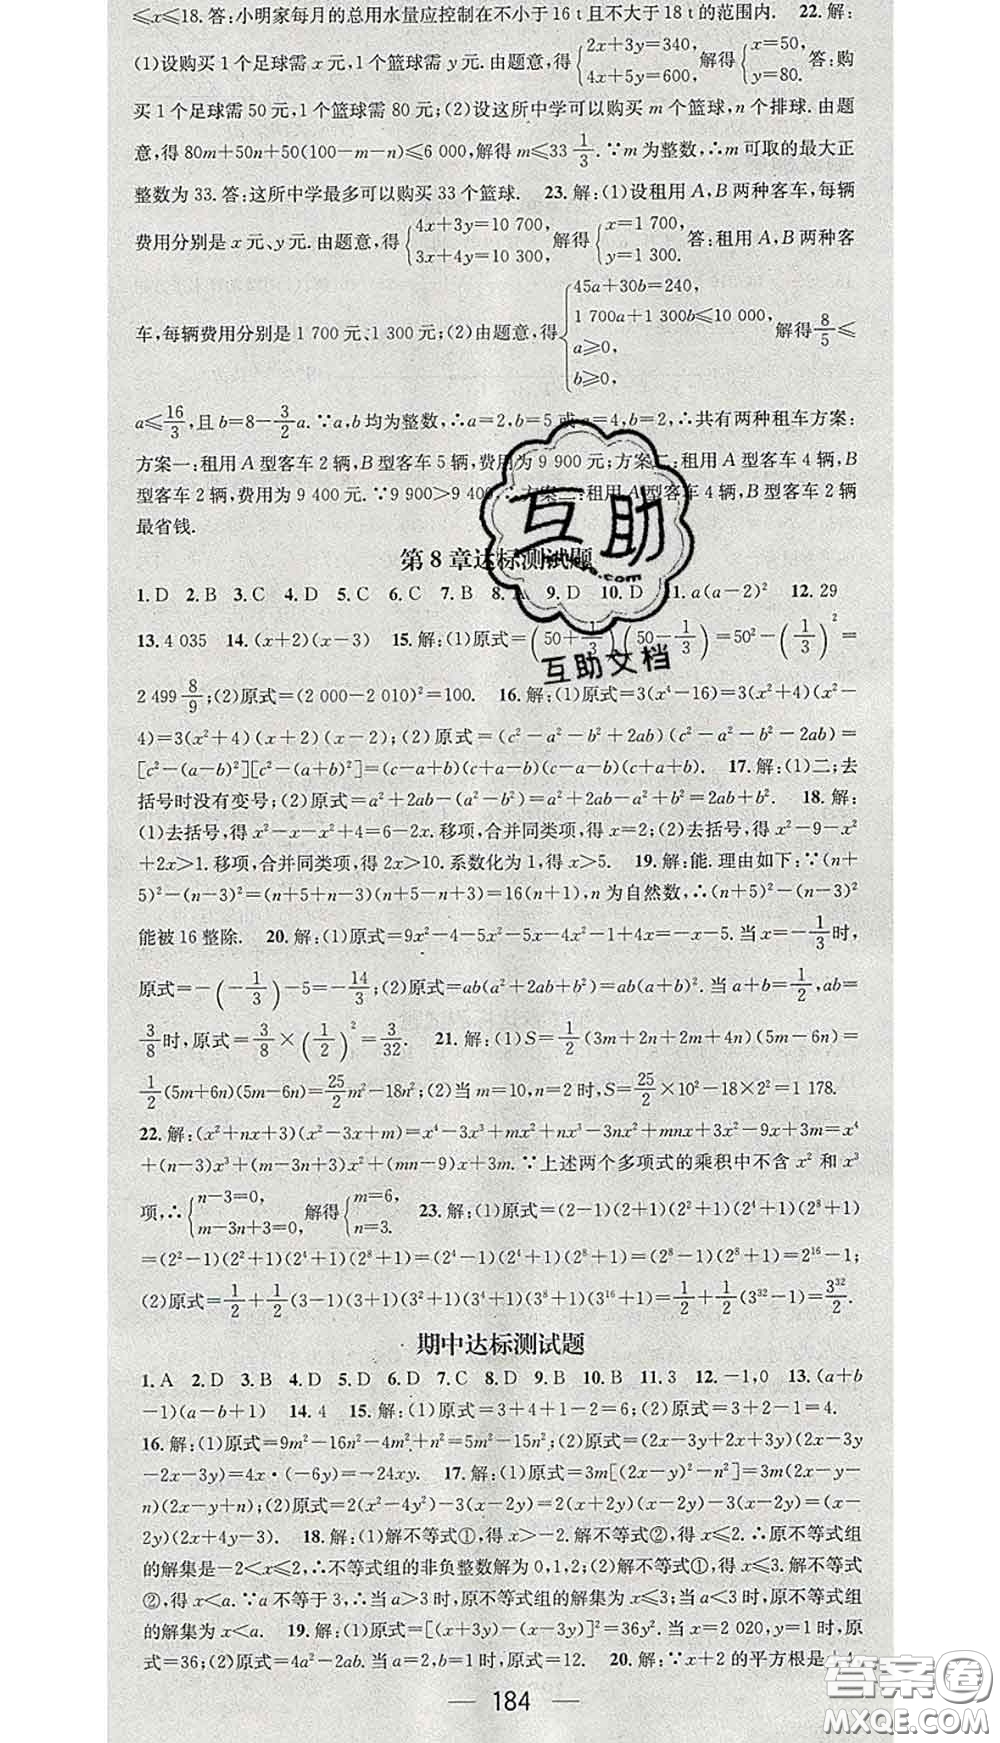 ≤x≤18. 答:小明家每月的总用水量应控制在不小于 16 t 且不大于 18 t 的范围内. 22. 解:
(1)设购买 1 个足球需 x 元,1 个篮球需 y 元. 由题意,得{2x+3y=340, 4x+5y=600, 解得{x=50, y=80. 答:购
买 1 个足球需 50 元,1 个篮球需 80 元;(2)设这所中学可以购买 m 个篮球,n 个排球. 由题
意,得 80m+50n+50(100-m-n)≤6 000,解得 m≤33 1/3. ∵m 为整数,∴m 可取的最大正
整数为 33. 答:这所中学最多可以购买 33 个篮球. 23. 解:(1)设租用 A,B 两种客车,每辆
费用分别是 x 元、y 元. 由题意,得{4x+3y=10 700, 3x+4y=10 300, 解得{x=1 700, y=1 300. 答:租用 A,B 两种客
车,每辆费用分别是 1 700 元、1 300 元;(2)由题意,得{45a+30b=240, 1 700a+1 300b≤10 000, a≥0, b≥0, 解得 8/5≤
a≤16/3,且 b=8-3/2a. ∵a,b 均为整数,∴a=2,b=5 或 a=4,b=2,∴共有两种租车方案:
方案一:租用 A 型客车 2 辆,B 型客车 5 辆,费用为 9 900 元;方案二:租用 A 型客车 4 辆,B
型客车 2 辆,费用为 9 400 元. ∵9 900>9 400,∴方案二:租用 A 型客车 4 辆,B 型客车 2 辆
最省钱.
第 8 章达标测试题
1. D 2. B 3. C 4. D 5. C 6. C 7. B 8. A 9. D 10. D 11. a(a-2)² 12. 29
13. 4 035 14. (x+2)(x-3) 15. 解:(1)原式=(50+1/3)(50-1/3)=50²-(1/3)²=
2 499 8/9;(2)原式=(2 000-2 010)²=100. 16. 解:(1)原式=3(x⁴-16)=3(x²+4)(x²-
4)=3(x²+4)(x+2)(x-2);(2)原式=(c²-a²-b²+2ab)(c²-a²-b²-2ab)=
[c²-(a-b)²][c²-(a+b)²]=(c-a+b)(c+a-b)(c-a-b)(c+a+b). 17. 解:(1)二;去
括号时没有变号;(2)原式=a²+2ab-(a²-b²)=a²+2ab-a²+b²=2ab+b². 18. 解:
(1)去括号,得 x²-x-x²+4=6-2x. 移项,合并同类项,得 x=2;(2)去括号,得 x²-9-x²
+2x>1. 移项,合并同类项,得 2x>10. 系数化为 1,得 x>5. 19. 解:能. 理由如下:∵(n+
5)²-(n-3)²=(n+5+n-3)(n+5-n+3)=16(n+1),n 为自然数,∴(n+5)²-(n-3)²
能被 16 整除. 20. 解:(1)原式=9x²-4-5x²-5x-4x²-1+4x=-x-5. 当 x=-1/3时,
原式=-(-1/3)-5=-14/3;(2)原式=ab(a²+2ab+b²)=ab(a+b)². 当 a+b=1/2,ab=
3/8时,原式=3/8×(1/2)²=3/32. 21. 解:(1)S=1/2(3m+2n+2m+4n)(5m-6n)=
1/2(5m+6n)(5m-6n)=25/2m²-18n²;(2)当 m=10,n=2 时,S=25/2×10²-18×2²=1 178.
22. 解:(x²+nx+3)(x²-3x+m)=x⁴-3x³+mx²+nx³-3nx²+mnx+3x²-9x+3m=x⁴
+(n-3)x³+(m-3n+3)x²+(mn-9)x+3m. ∵上述两个多项式的乘积中不含 x² 和 x³
项,∴{n-3=0, m-3n+3=0, 解得{m=6, n=3. 23. 解:(1)原式=(2-1)(2+1)(2²+1)(2⁴+1)(2⁸+1)
=(2²-1)(2²+1)(2⁴+1)(2⁸+1)=(2⁴-1)(2⁴+1)(2⁸+1)=(2⁸-1)(2⁸+1)=2¹⁶-1;
(2)原式=1/2+1/2(3-1)(3+1)(3²+1)(3⁴+1)(3⁸+1)(3¹⁶+1)=1/2+1/2(3³²-1)=3³²/2.
期中达标测试题
1. A 2. D 3. B 4. D 5. D 6. D 7. C 8. D 9. B 10. B 11. 3 12. -1,0 13. (a+b
-1)(a-b+1) 14. 4 15. 解:(1)原式=3+4+1-2=6;(2)原式=3+2-1=4.
16. 解:(1)原式=9m²-16n²-4m²+n²=5m²-15n²;(2)原式=(2x-3y+2x+3y)(2x-3y
-2x-3y)=4x·(-6y)=-24xy. 17. 解:(1)原式=3m[(2x-y)²-n²]=3m(2x-y-
n)(2x-y+n);(2)原式=2(x²-4y²)-3(x-2y)=2(x+2y)(x-2y)-3(x-2y)=(x-
2y)(2x+4y-3). 18. 解:(1)解不等式①,得 x>-2. 解不等式②,得 x≤2. ∴原不等式组
的解集是-2<x≤2,∴不等式组的非负整数解为 0,1,2;(2)解不等式①,得 x≤3. 解不等式
②,得 x<a. ∵a 不等于 3,∴当 a>3 时,原不等式组的解集为 x≤3;当 a<3 时,原不等式组
的解集为 x<a. 19. 解:(1)原式=[(x+3y)-(x-3y)]²=36y². 当 x=2 020,y=1 时,原
式=36;(2)原式=4a²-2ab. 当 a=2,b=1 时,原式=12. 20. 解:∵x+2 的平方根是
184
互助
.com
互助文档
答案圈
MXQE.COM